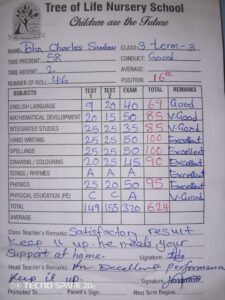 Tree of Life Nursery School
Children are the Future
NAME: John Charles CLASS: 3 term-3
TIME PRESENT: 58 CONDUCT: Good
TIME ABSENT: 2 AVERAGE:
NUMBER OF ROLL: 46 POSITION: 16th
SUBJECTS TEST 1 TEST 2 EXAM TOTAL REMARKS
ENGLISH LANGUAGE 9 20 40 69 Good
MATHEMATICAL DEVELOPMENT 20 15 50 85 V-Good
INTEGRATED STUDIES 25 25 35 85 V-Good
HAND WRITING 25 25 50 100 Excellent
SPELLINGS 25 25 50 100 Excellent
DRAWING / COLOURING 20 25 45 90 Excellent
SONGS / RHYMES A A A Excellent
PHONICS 25 20 50 95 Excellent
PHYSICAL EDUCATION (PE) C C A V-Good
TOTAL 149 155 320 624
AVERAGE
Class Teacher's Remark: Satisfactory result
Keep it up. he needs your
Support at home. Signature:
Head Teacher's Remark: An Excellent Performance
Keep it up. Signature:
Promoted to Parent's Sign: Next Term Begins
TECNO SPARK